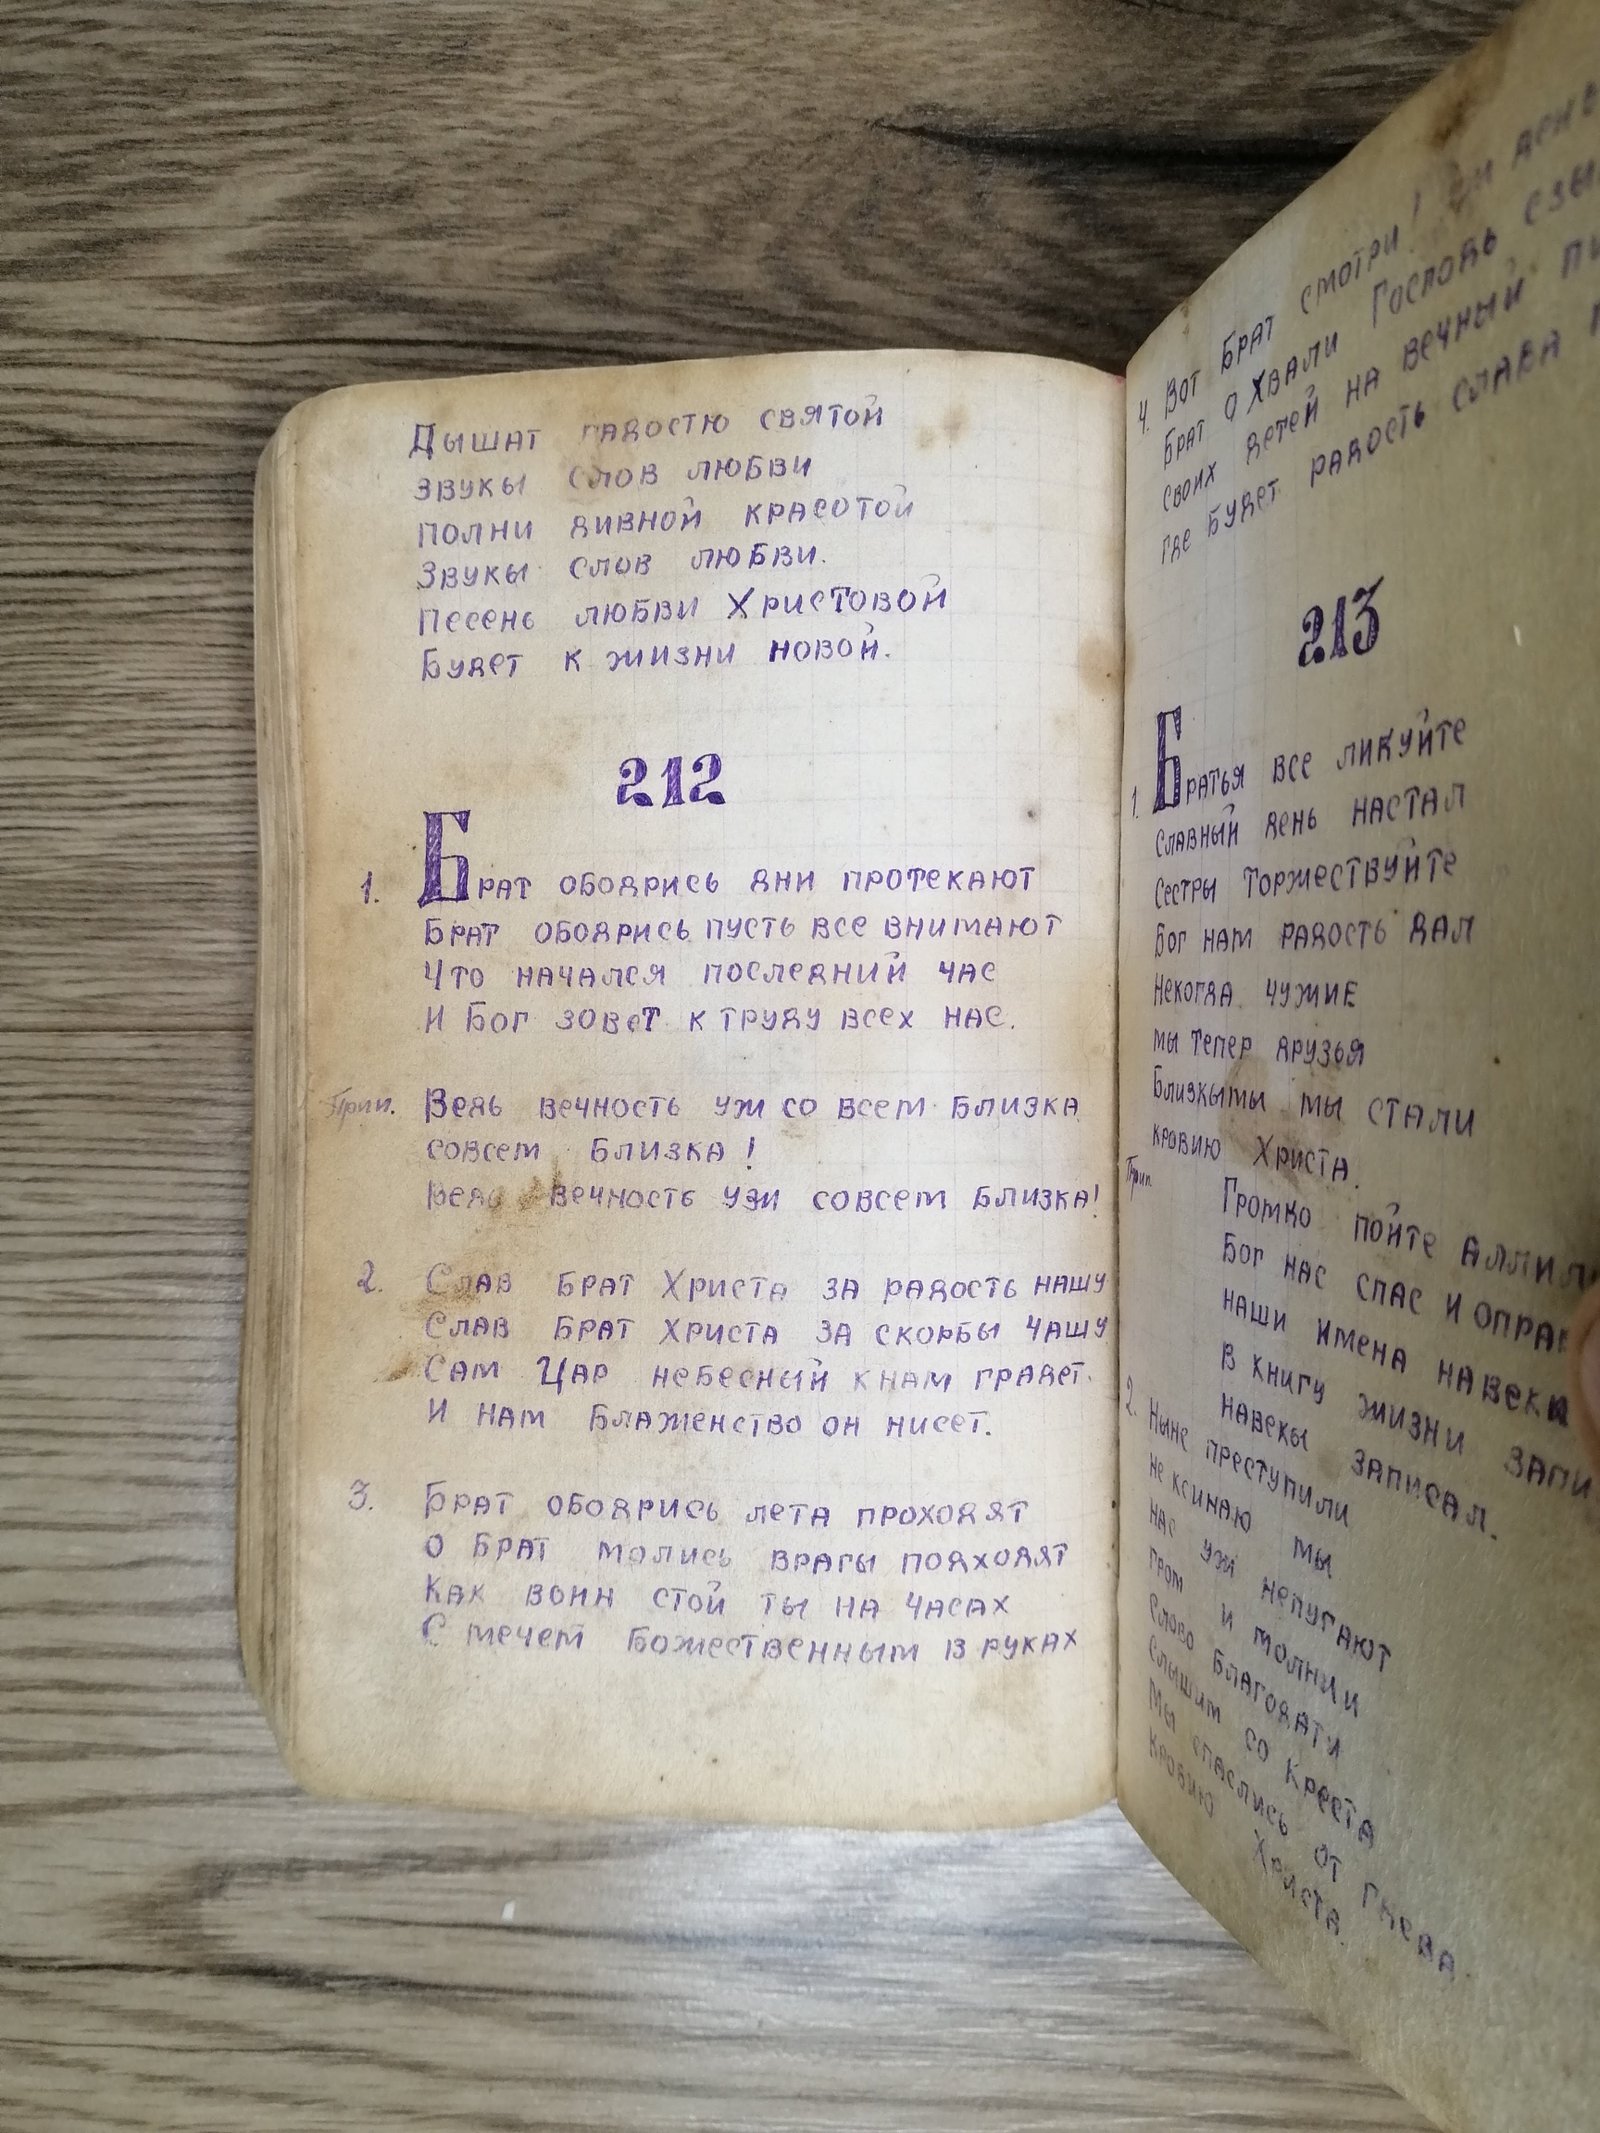 Дышат радостю святой
звукы слов любви
полни дивной красотой
Звукы слов любви.
Песень любви Христовой
Будет к жизни новой.
212
1. Брат ободрись дни протекают
Брат ободрись пусть все внимают
Что начался последний час
И Бог зовет к труду всех нас.
Прип. Ведь вечность уж со всем близка
совсем близка!
Ведь вечность уж совсем близка!
2. Слав брат Христа за радость нашу
Слав брат Христа за скорбы чашу
Сам Цар небесный к нам грядет.
И нам блаженство он нисет.
3. Брат ободрись лета проходят
О брат молись врагы подходят
Как воин стой ты на часах
С мечем Божественным в руках
4. Вот Брат смотри! день
Брат о хвали Господь
своих детей на вечный
где будет радость слава
213
1. Братья все ликуйте
славный день настал
Сестры торжествуйте
Бог нам радость дал
Некогда чужие
мы тепер друзья
Близкыты мы стали
кровию Христа.
Прип. Громко пойте
Бог нас спас и
наши имена навеки
в книгу жизни
навекы записал.
2. Ныне преступили
не ксинаю мы
нас уж непугают
гром и молнии
Слово благодати
Слышим со креста
Мы спаслись от гнева
кровию Христа.